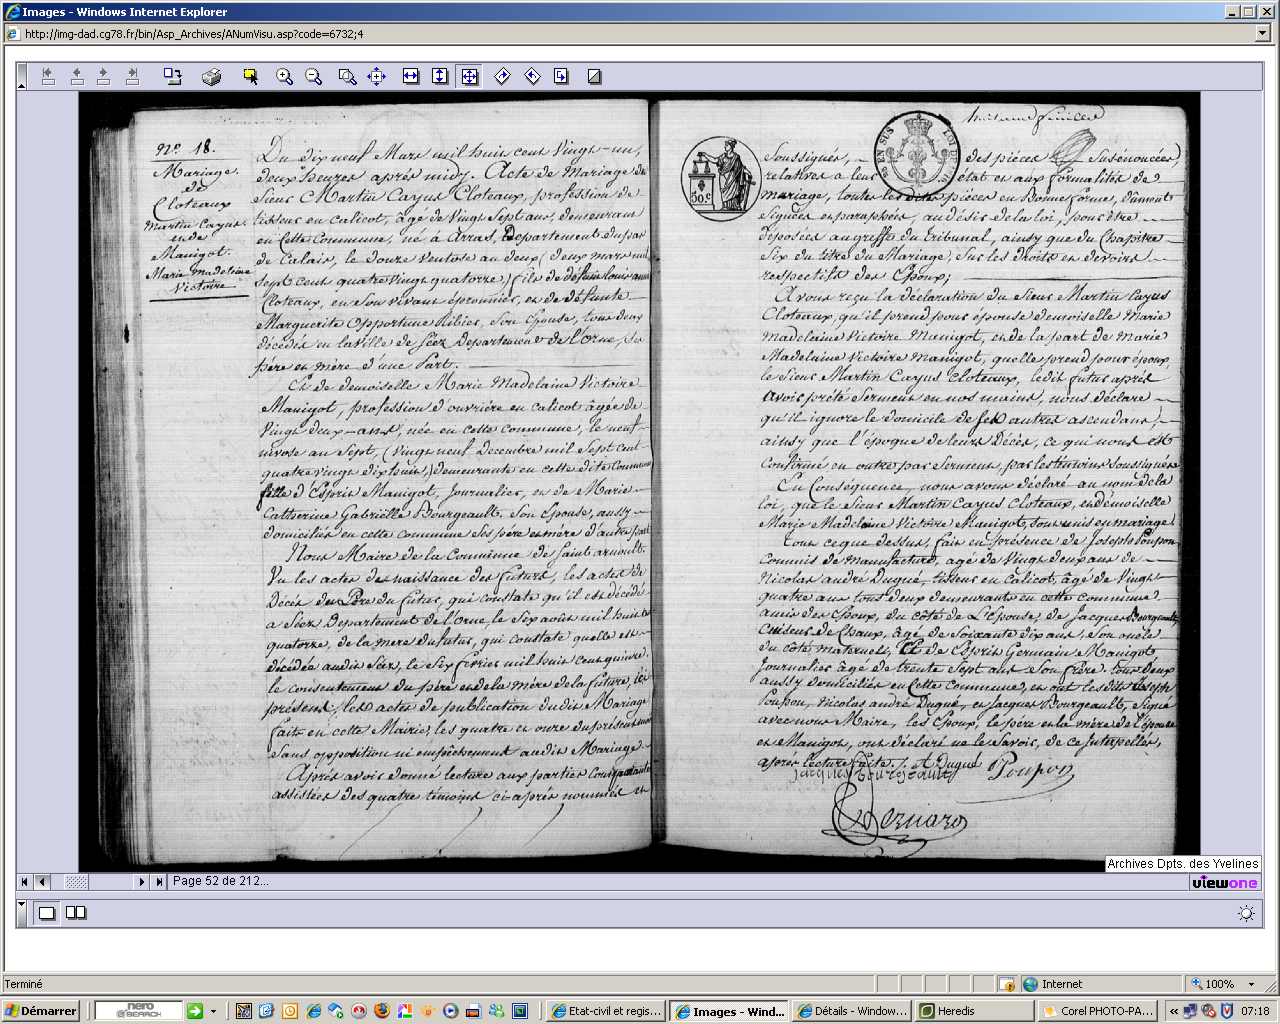 Images - Windows Internet Explorer
http://img-dad.cg78.fr/bin/Asp_Archives/ANumVisu.asp?code=6732;4
No. 18.
Mariage.
de
Cloteaux
Martin Cayus.
et de
Manigot.
Marie Madeleine
Victoire
Du dix neuf Mars mil huit cent Vingt-un,
deux heures après midy. Acte de Mariage du
Sieur Martin Cayus Cloteaux, profession de
tisseur en calicot, âgé de Vingt Sept ans, demeurant
en Cette Commune, né à Arras, Departement du pas
de Calais, le douze Ventose au deux (deux mars mil
sept cent quatre Vingt quatorze) fils de défunt Louis
Cloteaux, en son vivant éperonnier, et de défunte
Marguerite Opportune Ribier, Son Epouse, tous deux
décédés en la Ville de Séez Departement de l'Orne, ses
père et mère d'une Part.
Et de demoiselle Marie Madelaine Victoire
Manigot, profession d'ouvrière en calicot âgée de
Vingt deux-ans, née en cette commune, le neuf
nivose au Sept, (Vingt neuf Decembre mil Sept cent
quatre vingt dix huit,) demeurante en cette dite Commune
fille d'Esprit Manigot, Journalier, et de Marie
Catherine Gabrielle Bourgeault, Son Epouse, aussy
domiciliés en cette commune Ses père et mère d'autre part
Nous Maire de la Commune de Saint arnoult.
Vu les actes de naissance des futurs, les actes de
Décès du Père du futur, qui constate qu'il est décédé
a Séez Departement de l'Orne, le Six août mil huit
quatorze, de la mere du futur, qui constate quelle est
décédée audit Séez, le Six fevrier mil huit cent quinze.
le consentement du père et de la mère de la future, ici
présens, les actes de publication dudit Mariage
fait en cette Mairie, les quatre et onze du présent mois
Sans opposition ni empêchement audit Mariage
Après avoir donné lecture aux parties Comparantes
assistées des quatre témoins ci-après nommés et
50c
Soussignés, des pièces Susénoncées,
relatives a leur état et aux formalités de
mariage, toutes les dites pièces en Bonne forme, dûment
Signées et paraphées, au désir de la loi, pour être
déposées au greffe du tribunal, ainsy que du Chapitre
Six du titre du Mariage, Sur les Droits et devoirs
respectifs des Epoux;
Avons reçu la déclaration du Sieur Martin Cayus
Cloteaux, qu'il prend pour épouse demoiselle Marie
madelaine Victoire Manigot, et de la part de Marie
Madelaine Victoire Manigot, quelle prend pour époux,
le Sieur Martin Cayus Cloteaux, ledit futur après
avoir prété Serment en nos mains, nous déclare
qu'il ignore le domicile de Ses autres ascendans,
ainsy que l'époque de leurs Décès, ce qui nous est
Confirmé en outre par Serment, par les témoins Soussignés
En Conséquence, nous avons déclaré au nom de la
loi, que le Sieur Martin Cayus Cloteaux, et demoiselle
Marie Madelaine Victoire Manigot, sont unis en mariage
Tout ce que dessus, fait en présence de Joseph Poupon
Commis de Manufacture, agé de Vingt deux ans de
Nicolas andré Dugué, tisseur en Calicot, âgé de Vingt
quatre ans tous deux demeurant en cette commune
amis des Epoux, du côté de L'Epouse, de Jacques Bourgeault
Cuiseur de Chaux, âgé de Soixante dix ans, Son oncle
du coté maternel, Et de Esprit Germain Manigot
Journalier âgé de trente Sept ans Son frère. tous deux
aussy domiciliés en Cette Commune, et ont lesdits Joseph
Poupon, Nicolas andré Dugué, et Jacques Bourgeault, Signé
avec nous Maire, les Epoux, le père et la mère de l'épouse
et Manigot, ont déclaré ne le Savoir, de ce Interpellés,
après lecture faite. A Dugué
jacques bourgeault Poupon
Bernard
Archives Dpts. des Yvelines
Page 52 de 212...
viewone
Terminé
Internet
100%
Démarrer
nero
SEARCH
Etat-civil et regis...
Images - Wind...
Détails - Window...
Heredis
Corel PHOTO-PA...
07:18